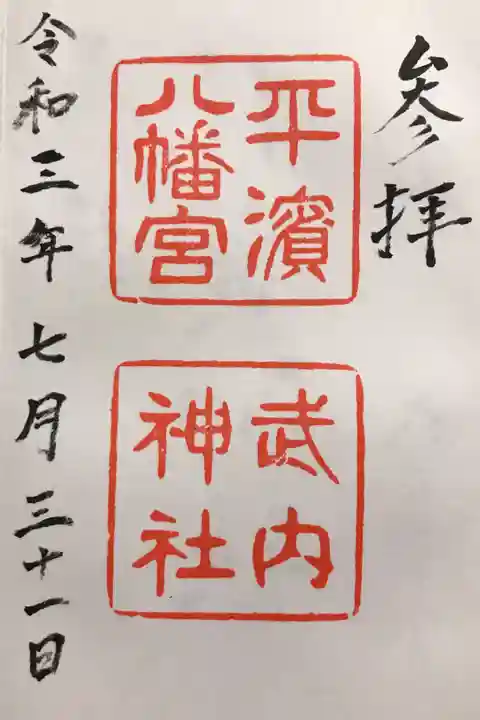 参拝
平濱
八幡宮
武内
神社
令和三年七月三十一日